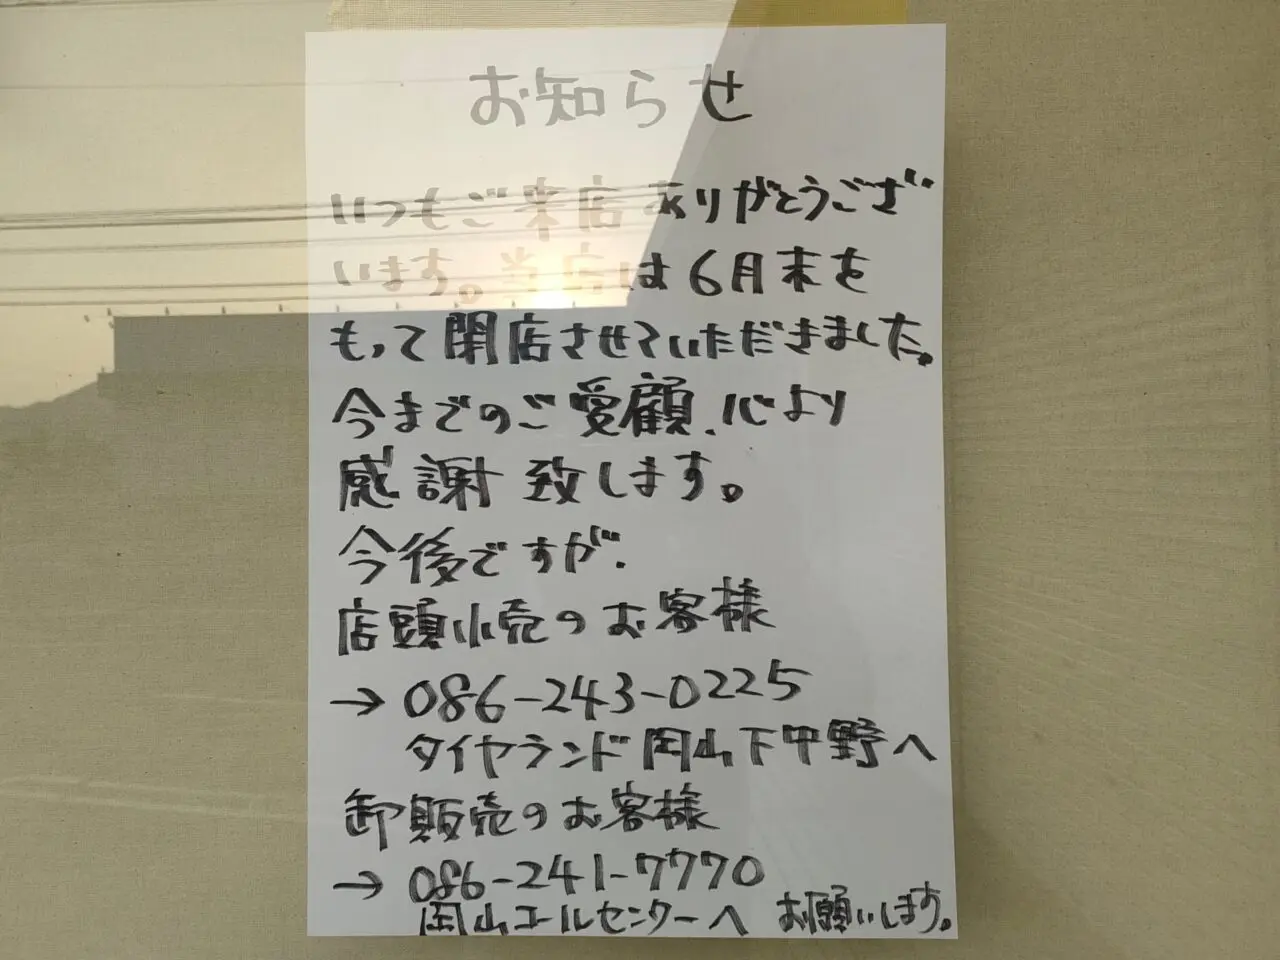 お知らせ
いつもご来店ありがとうござ
います。当店は6月末を
もって閉店させていただきました。
今までのご愛顧、心より
感謝致します。
今後ですが、
店頭小売のお客様
→086-243-0225
タイヤランド岡山下中野へ
卸販売のお客様
→086-241-7770
岡山コールセンターへ お願いします。